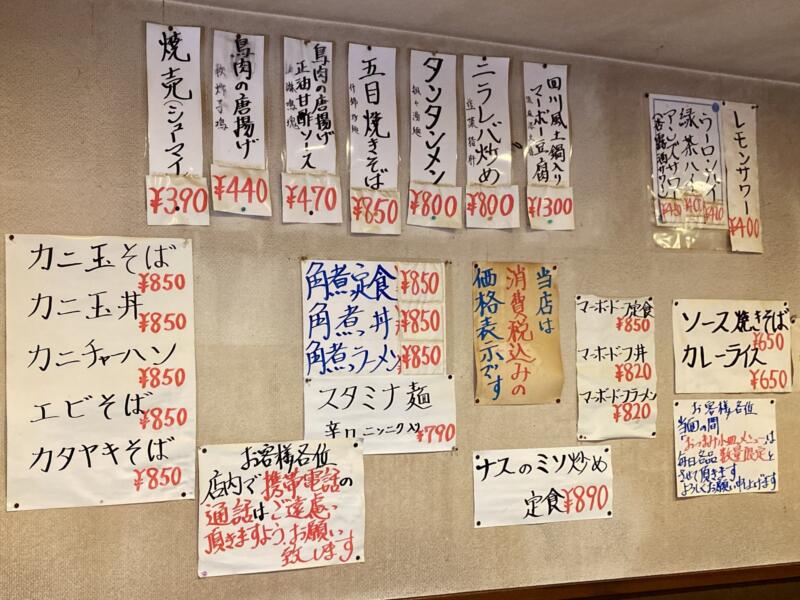 焼売(シューマイ)
¥390
鳥肉の唐揚げ
軟炸子鶏
¥440
鳥肉の唐揚げ
正油甘酢ソース
¥470
五目焼きそば
什錦炒麺
¥850
タンタンメン
¥800
ニラレバ炒め
韮菜猪肝
¥800
四川風土鍋入り
マーボー豆腐
¥1300
ウーロンハイ
緑茶ハイ
アンズサワー
レモンサワー
¥400
カニ玉そば
¥850
カニ玉丼
¥850
カニチャーハン
¥850
エビそば
¥850
カタヤキそば
¥850
角煮定食 ¥850
角煮丼 ¥850
角煮ラーメン ¥850
スタミナ麺
辛口ニンニク入り ¥790
当店は
消費税込みの
価格表示です
マーボードーフ定食
¥850
マーボードーフ丼
¥820
マーボードーフラーメン
¥820
ソース焼きそば
¥650
カレーライス
¥650
お客様各位
店内で携帯電話の
通話はご遠慮
頂きますよう、お願い
致します
ナスのミソ炒め
定食 ¥890
お客様各位
当面の間
「おつまみ小皿メニュー」は
毎日各品数量限定と
させて頂きます
よろしくお願い申し上げます